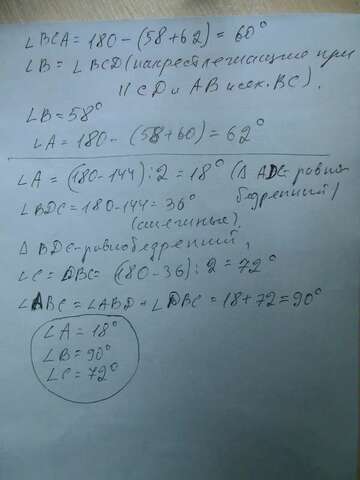 ∠BCA = 180 - (58 + 62) = 60°
∠B = ∠BCD (накрестлежащие при
|| CD и AB и сек. BC).
∠B = 58°
∠A = 180 - (58 + 60) = 62°
∠A = (180 - 144) : 2 = 18° (Δ ADC - равно
бедренный)
∠BDC = 180 - 144 = 36°
(смежные).
Δ BDC - равнобедренний,
∠C = DBC = (180 - 36) : 2 = 72°
∠ABC = ∠ABD + ∠DBC = 18 + 72 = 90°
∠A = 18°
∠B = 90°
∠C = 72°